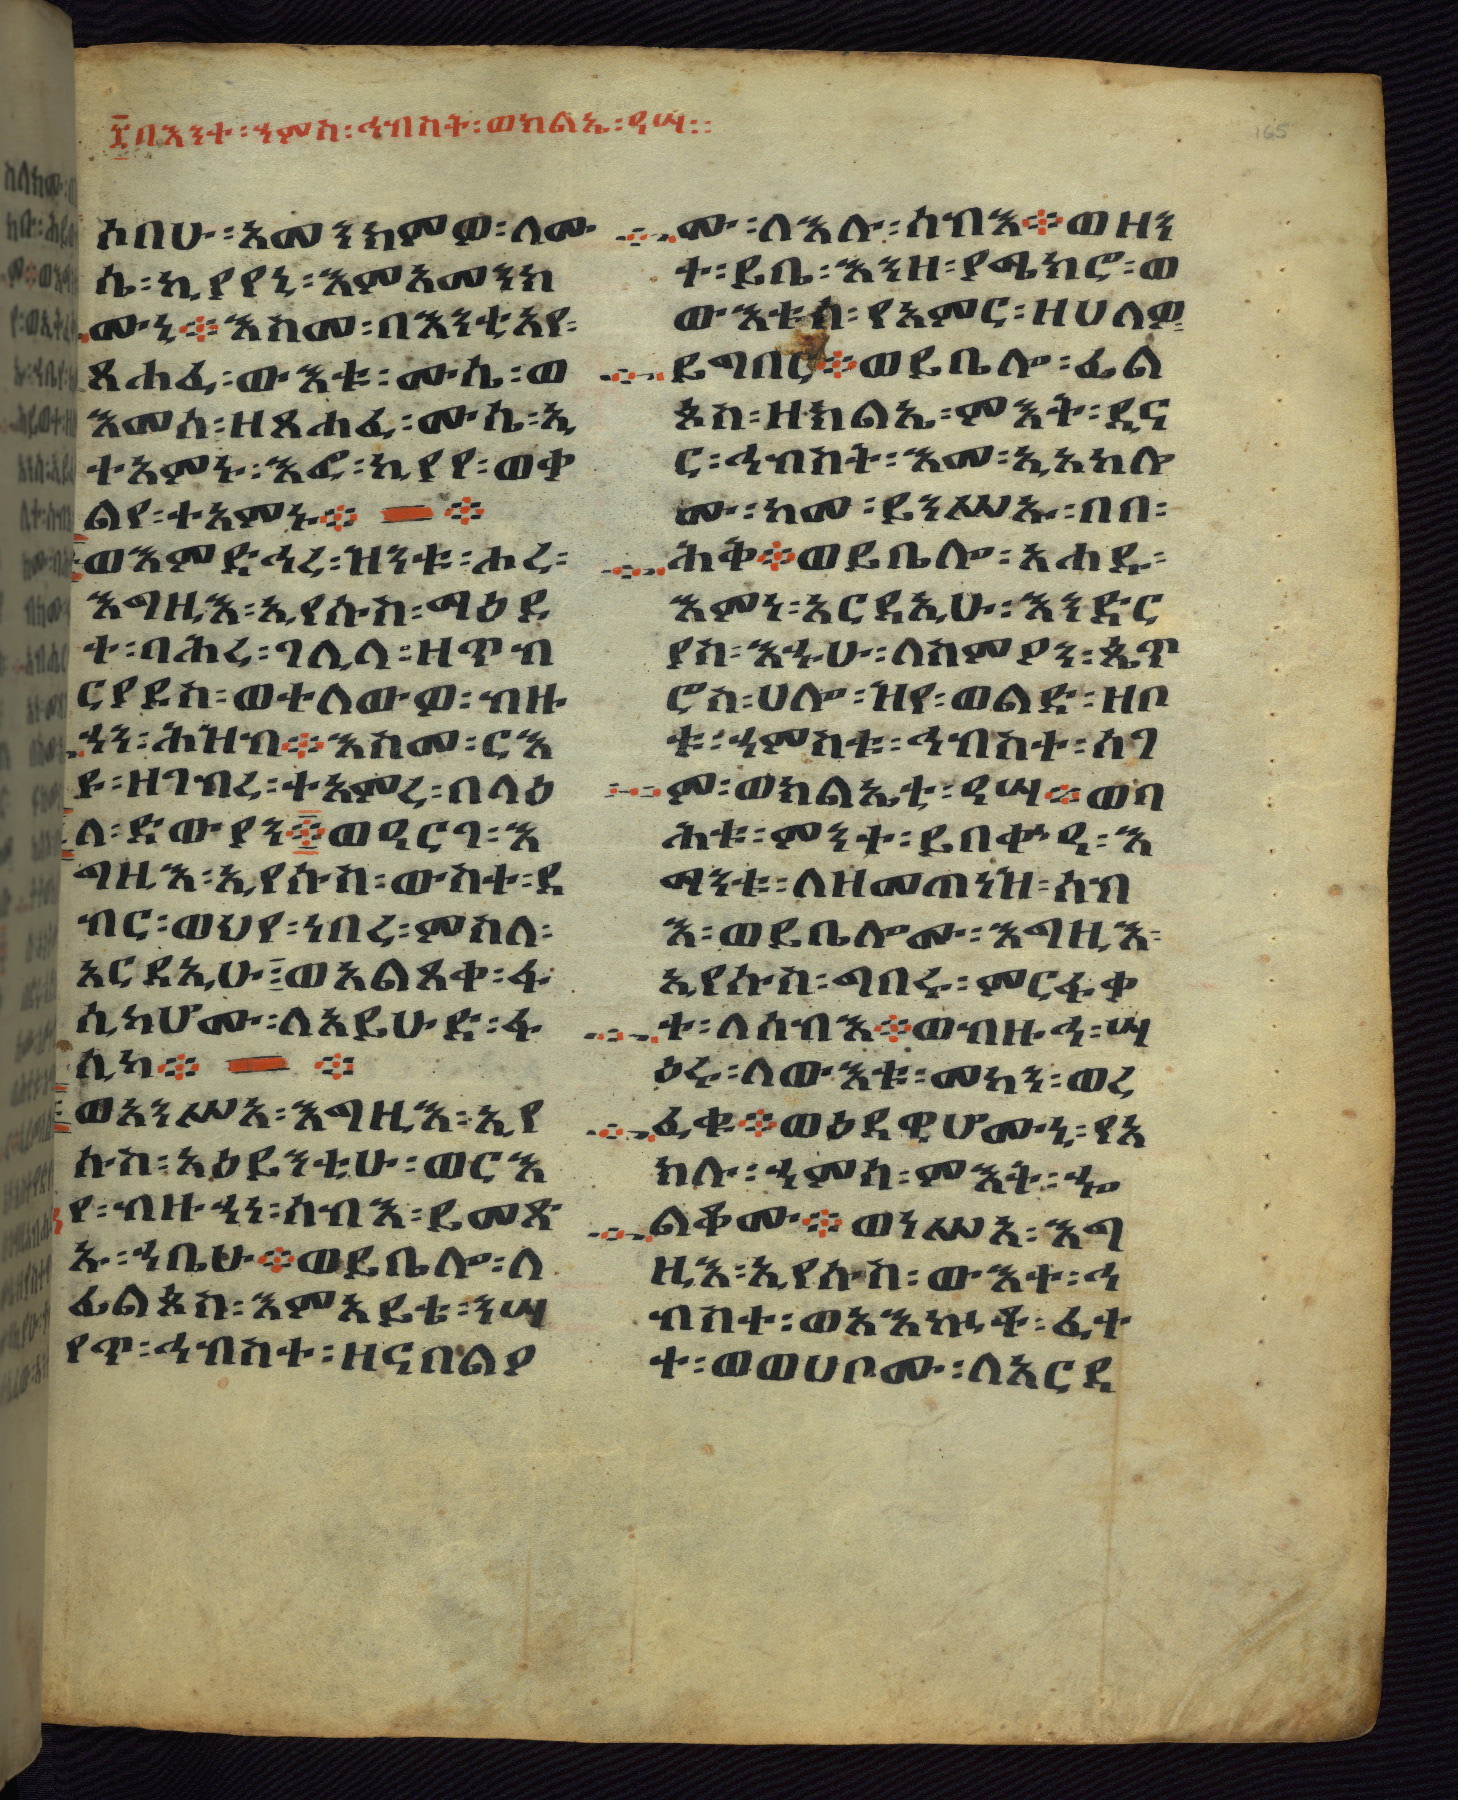 ፲በእንተ፡ኀምስ፡ኅብስት፡ወክልኤ፡ዓሣ፡፡
165
ሶበሁ፡አመንክምዎ፡ለሙ
ሴ፡ኪያየኒ፡እምአመንክ
ሙኒ፨እስመ፡በእንቲአየ፡
ጸሐፈ፡ውእቱ፡ሙሴ፡ወ
እመሰ፡ዘጸሐፈ፡ሙሴ፡ኢ
ተአምኑ፡እፎ፡ኪያየ፡ወቃ
ልየ፡ተአምኑ፨ ፨
ወእምድኅረ፡ዝንቱ፡ሐረ፡
እግዚእ፡ኢየሱስ፡ማዕዶ
ተ፡ባሕረ፡ገሊላ፡ዘጥብ
ርያዶስ፡ወተለውዎ፡ብዙ
ኃን፡ሕዝብ፨እስመ፡ርእ
ዩ፡ዘገብረ፡ተአምረ፡በላዕ
ለ፡ድውያን፨ወዓርገ፡እ
ግዚእ፡ኢየሱስ፡ውስተ፡ደ
ብር፡ወህየ፡ነበረ፡ምስለ፡
አርዳኢሁ፡ወአልጸቀ፡ፋ
ሲካሆሙ፡ለአይሁድ፡ፋ
ሲካ፨ ፨
ወአንሥአ፡እግዚእ፡ኢየ
ሱስ፡አዕይንቲሁ፡ወርእ
የ፡ብዙኃነ፡ሰብአ፡ይመጽ
ኡ፡ኀቤሁ፨ወይቤሎ፡ለ
ፊልጶስ፡እምአይቴ፡ንሣ
የጥ፡ኅብስተ፡ዘናበልዖ
ሙ፡ለእሉ፡ሰብእ፨ወዘን
ተ፡ይቤ፡እንዘ፡ያሜክሮ፡ወ
ውእቱሰ፡የአምር፡ዘሀለዎ
ይግበር፨ወይቤሎ፡ፊል
ጶስ፡ዘክልኤ፡ምእት፡ዲና
ር፡ኅብስት፡እመ፡ኢአክሎ
ሙ፡ከመ፡ይንሥኡ፡በበ፡
ሕቅ፨ወይቤሎ፡አሐዱ፡
እምነ፡አርዳኢሁ፡እንድር
ያስ፡እኁሁ፡ለስምዖን፡ጴጥ
ሮስ፡ሀሎ፡ዝየ፡ወልድ፡ዘቦ
ቱ፡ኀምስቱ፡ኅብስተ፡ሰገ
ም፡ወክልኤቲ፡ዓሣ፨ወባ
ሕቱ፡ምንተ፡ይበቍዓ፡እ
ማንቱ፡ለዘመጠነዝ፡ሰብ
እ፡ወይቤሎሙ፡እግዚእ፡
ኢየሱስ፡ግበሩ፡ምርፋቃ
ተ፡ለሰብእ፨ወብዙኅ፡ሣ
ዕሩ፡ለውእቱ፡መካን፡ወረ
ፈቁ፨ወዕደዊሆሙኒ፡የአ
ክሉ፡ኀምስ፡ምእት፡ኍ
ልቆሙ፨ወነሥአ፡እግ
ዚእ፡ኢየሱስ፡ውእተ፡ኅ
ብስተ፡ወአእኰቶ፡ፈተ
ተ፡ወወሀቦሙ፡ለአርዳ